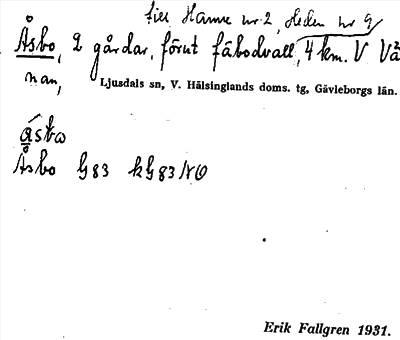 Hamre nr 2, Heden nr 9
Åsbo, 2 gårdar, förut fäbodvall, 4 km. V Vä
nan,
Ljusdals sn, V. Hälsinglands doms. tg, Gävleborgs län.
åsbω
Åsbo G 83 kG 83 NO
Erik Fallgren 1931.